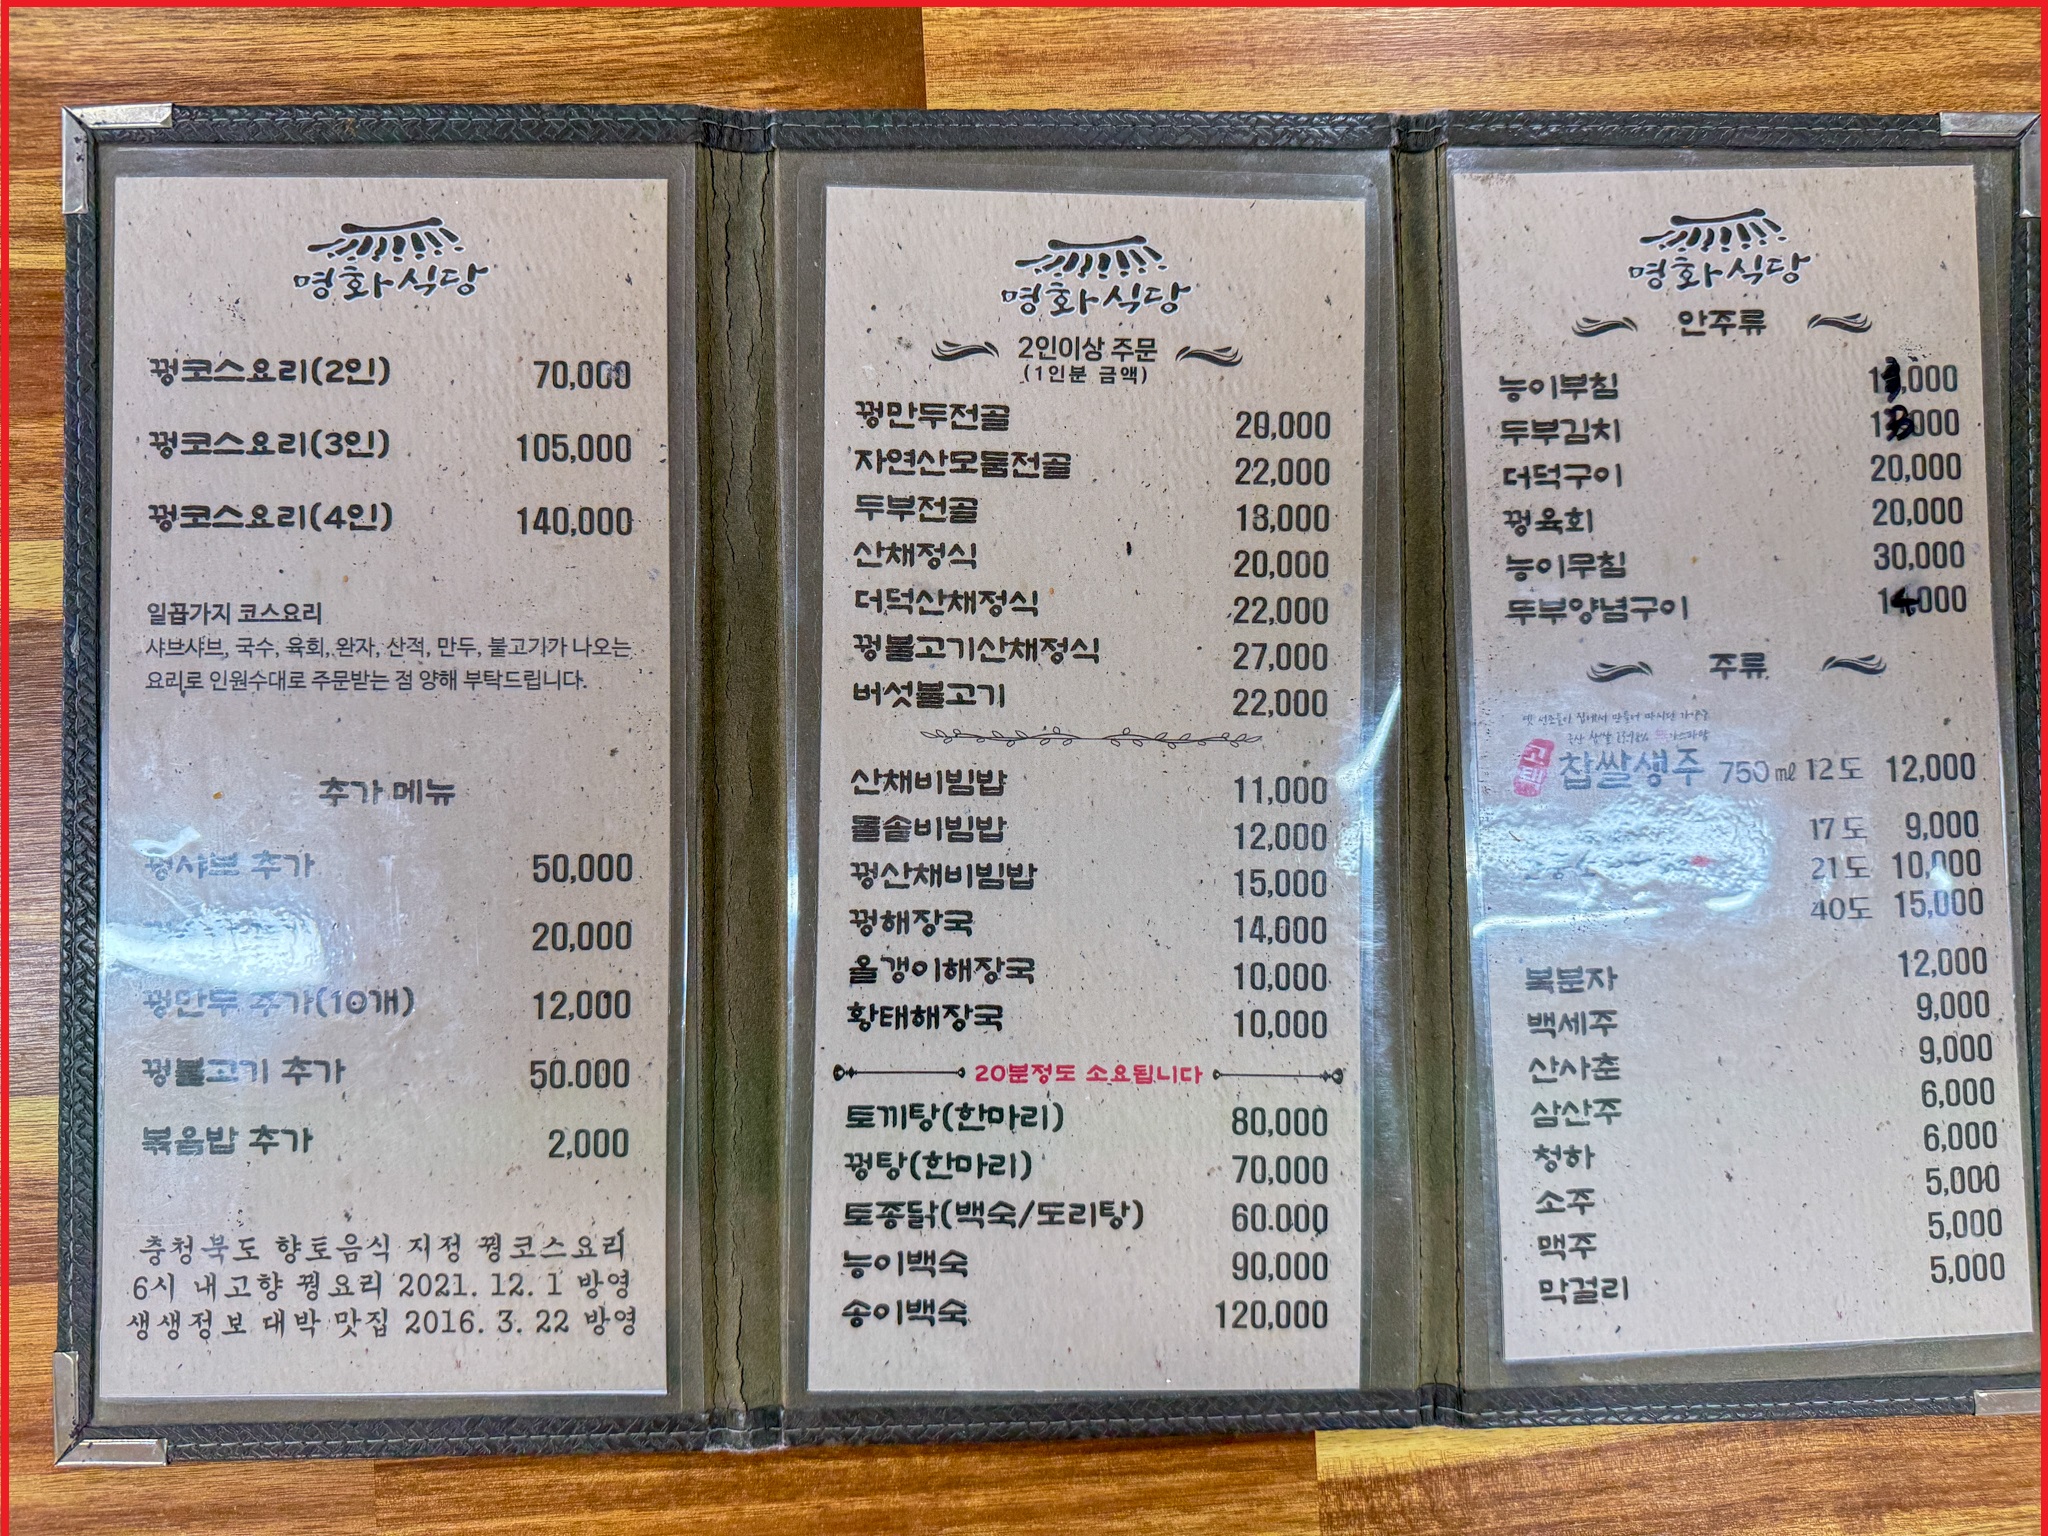 명화식당
꿩코스요리(2인) 70,000
꿩코스요리(3인) 105,000
꿩코스요리(4인) 140,000
일곱가지 코스요리
샤브샤브, 국수, 육회, 완자, 산적, 만두, 불고기가 나오는
요리로 인원수대로 주문받는 점 양해 부탁드립니다.
추가 메뉴
꿩샤브 추가 50,000
20,000
꿩만두 추가(10개) 12,000
꿩불고기 추가 50.000
볶음밥 추가 2,000
충청북도 향토음식 지정 꿩코스요리
6시 내고향 꿩요리 2021. 12. 1 방영
생생정보 대박 맛집 2016. 3. 22 방영
명화식당
2인이상 주문
(1인분 금액)
꿩만두전골 20,000
자연산모듬전골 22,000
두부전골 18,000
산채정식 20,000
더덕산채정식 22,000
꿩불고기산채정식 27,000
버섯불고기 22,000
산채비빔밥 11,000
돌솥비빔밥 12,000
꿩산채비빔밥 15,000
꿩해장국 14,000
올갱이해장국 10,000
황태해장국 10,000
20분정도 소요됩니다
토끼탕(한마리) 80,000
꿩탕(한마리) 70,000
토종닭(백숙/도리탕) 60.000
능이백숙 90,000
송이백숙 120,000
명화식당
안주류
능이부침
두부김치 13,000
더덕구이 20,000
꿩육회 20,000
능이무침 30,000
두부양념구이 14,000
주류
옛 선조들이 집에서 만들어 마시던 가양주
찹쌀생주 750㎖ 12도 12,000
17도 9,000
21도 10,000
40도 15,000
복분자 12,000
백세주 9,000
산사춘 9,000
삼산주 6,000
청하 6,000
소주 5,000
맥주 5,000
막걸리 5,000